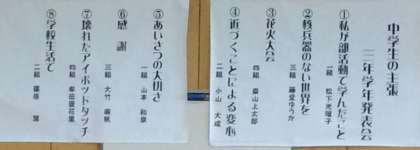 中学生の主張
三年学年発表会
①私が部活動で学んだこと
一組 松下光曜子
②核兵器のない世界を
三組 藤堂ゆうか
③花火大会
四組 畠山丈太郎
④近づくことによる変化
二組 小山 大成
⑤あいさつの大切さ
一組 山本 和奈
⑥感謝
三組 大竹
⑦壊れたアイポットタッチ
四組
⑧学校生活で
二組 篠原